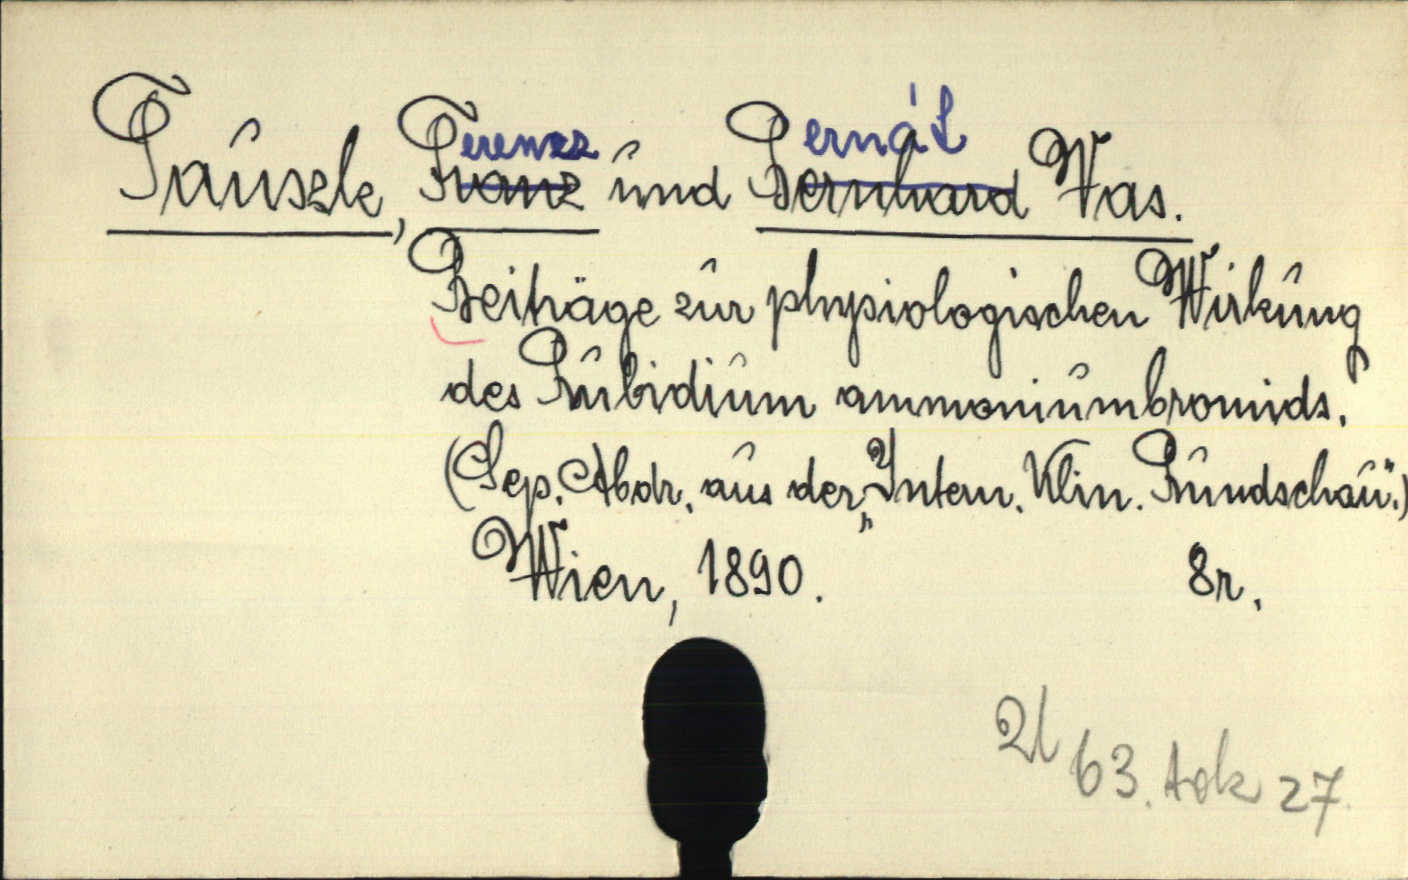 Tauszk, Franz Ferencz und Bernhard Bernát Vas.
Beiträge zur physiologischen Wirkung
des Rubidium ammoniumbromids.
(Sep. Abdr. aus der „Intern. Klin. Rundschau".)
Wien, 1890. 8r.
63. tok 27.